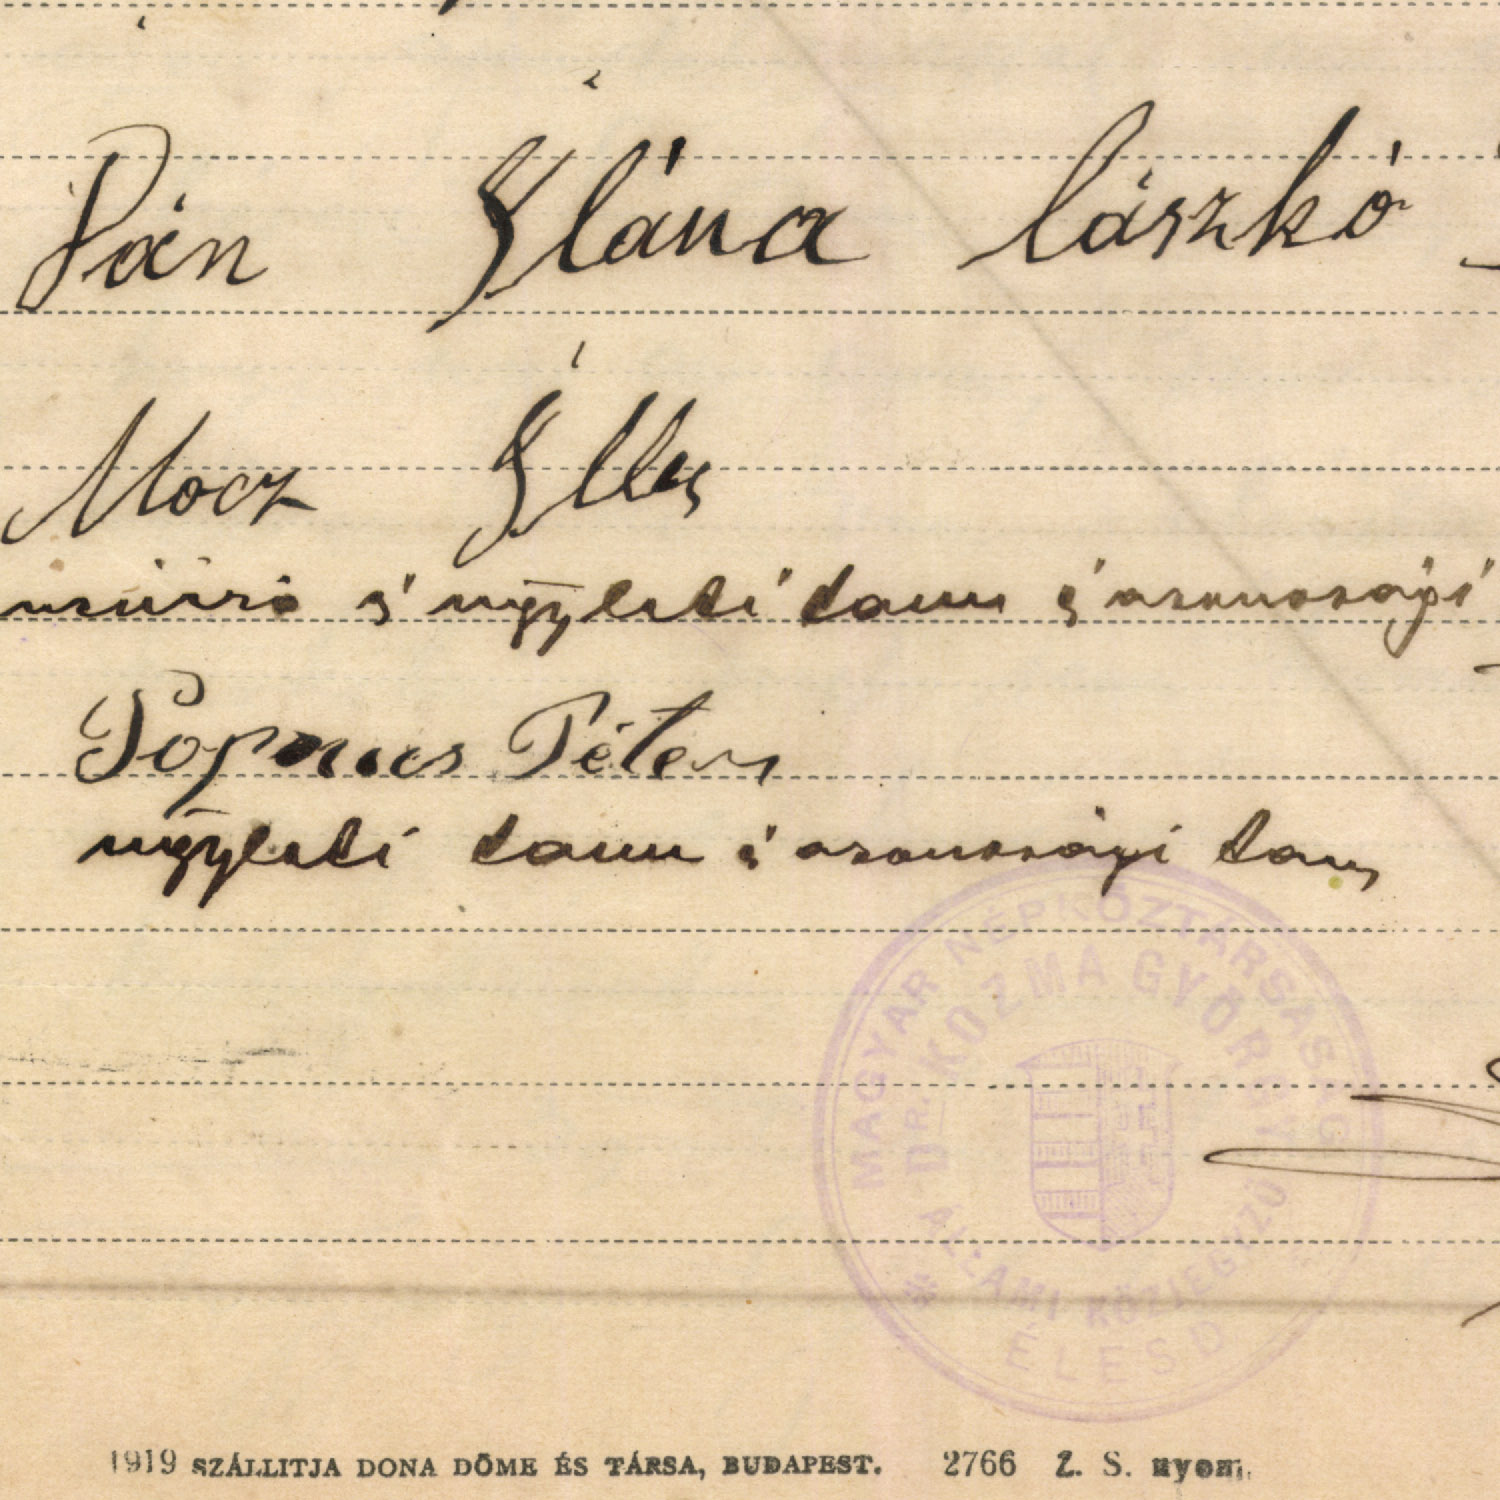 Pán Ilána lászkó
Mocz Illés
névíró és ügyleti tanu és azonossági
Péter
ügyleti tanu és azonossági tanu
MAGYAR NÉPKÖZTÁRSASÁG
DR. KOZMA GYÖRGY
ÁLLAMI KÖZJEGYZŐ
ÉLESD
1919 SZÁLLITJA DONA DÖME ÉS TÁRSA, BUDAPEST. 2766 Z. S. nyom.